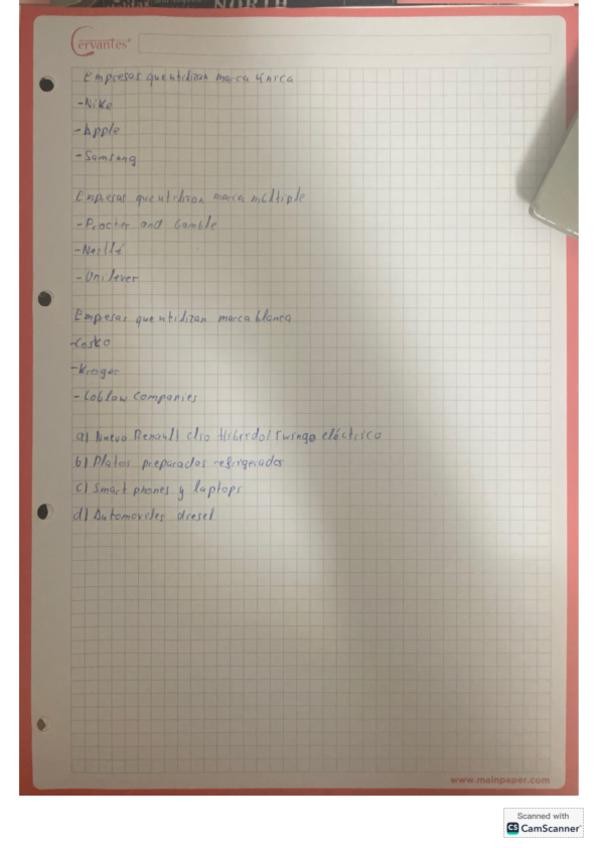 NORTH
Cervantes®
Empresas que utilizan marca única
-Nike
-Apple
-Samsung
Empresas que utilizan marca múltiple
-Procter and Gamble
-Nestlé
-Unilever
Empresas que utilizan marca blanca
-Cosko
-Kroger
-Loblaw Companies
a) Nuevo Renault clio Híbrido/ Twingo eléctrico
b) Platos preparados refrigerados
c) Smart phones y laptops
d) Automoviles diesel
www.mainpaper.com
Scanned with
CS CamScanner